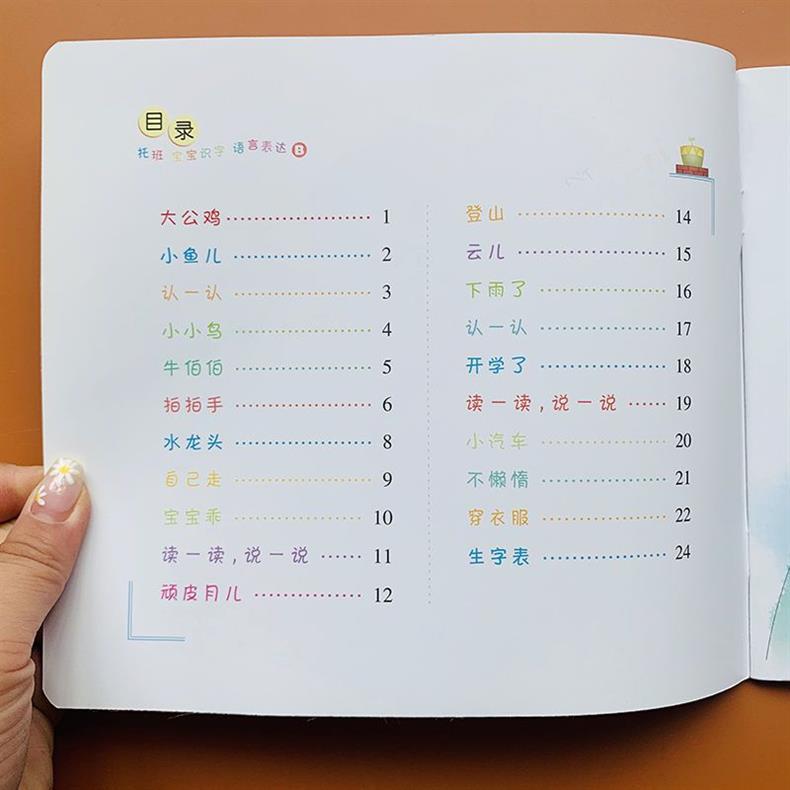 目录
托班 宝宝识字 语言表达 B
大公鸡 …………………… 1
小鱼儿 …………………… 2
认一认 …………………… 3
小小鸟 …………………… 4
牛伯伯 …………………… 5
拍拍手 …………………… 6
水龙头 …………………… 8
自己走 …………………… 9
宝宝乖 …………………… 10
读一读,说一说 …… 11
顽皮月儿 ……………… 12
登山 …………………… 14
云儿 …………………… 15
下雨了 ………………… 16
认一认 ………………… 17
开学了 ………………… 18
读一读,说一说 …… 19
小汽车 ………………… 20
不懒惰 ………………… 21
穿衣服 ………………… 22
生字表 ………………… 24